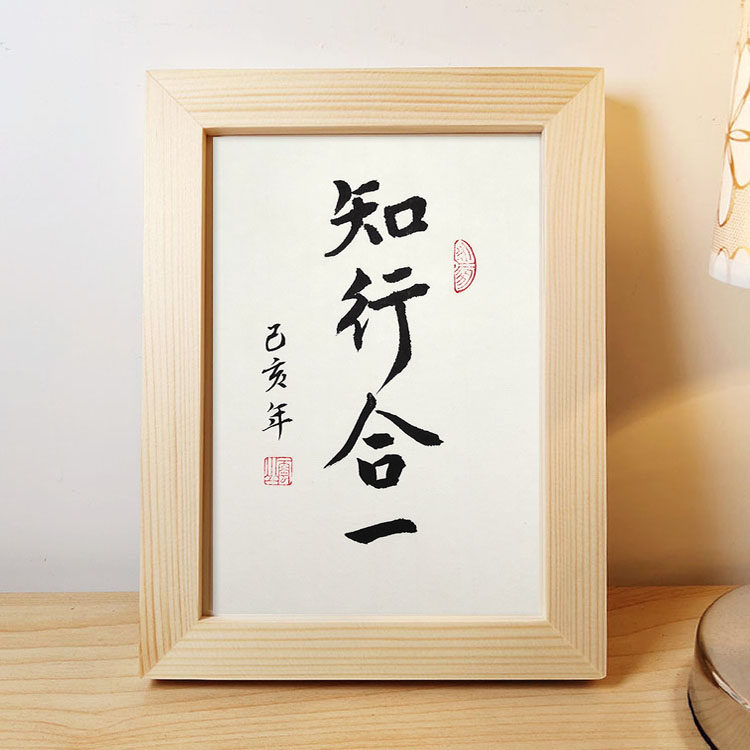 知行合一
己亥年